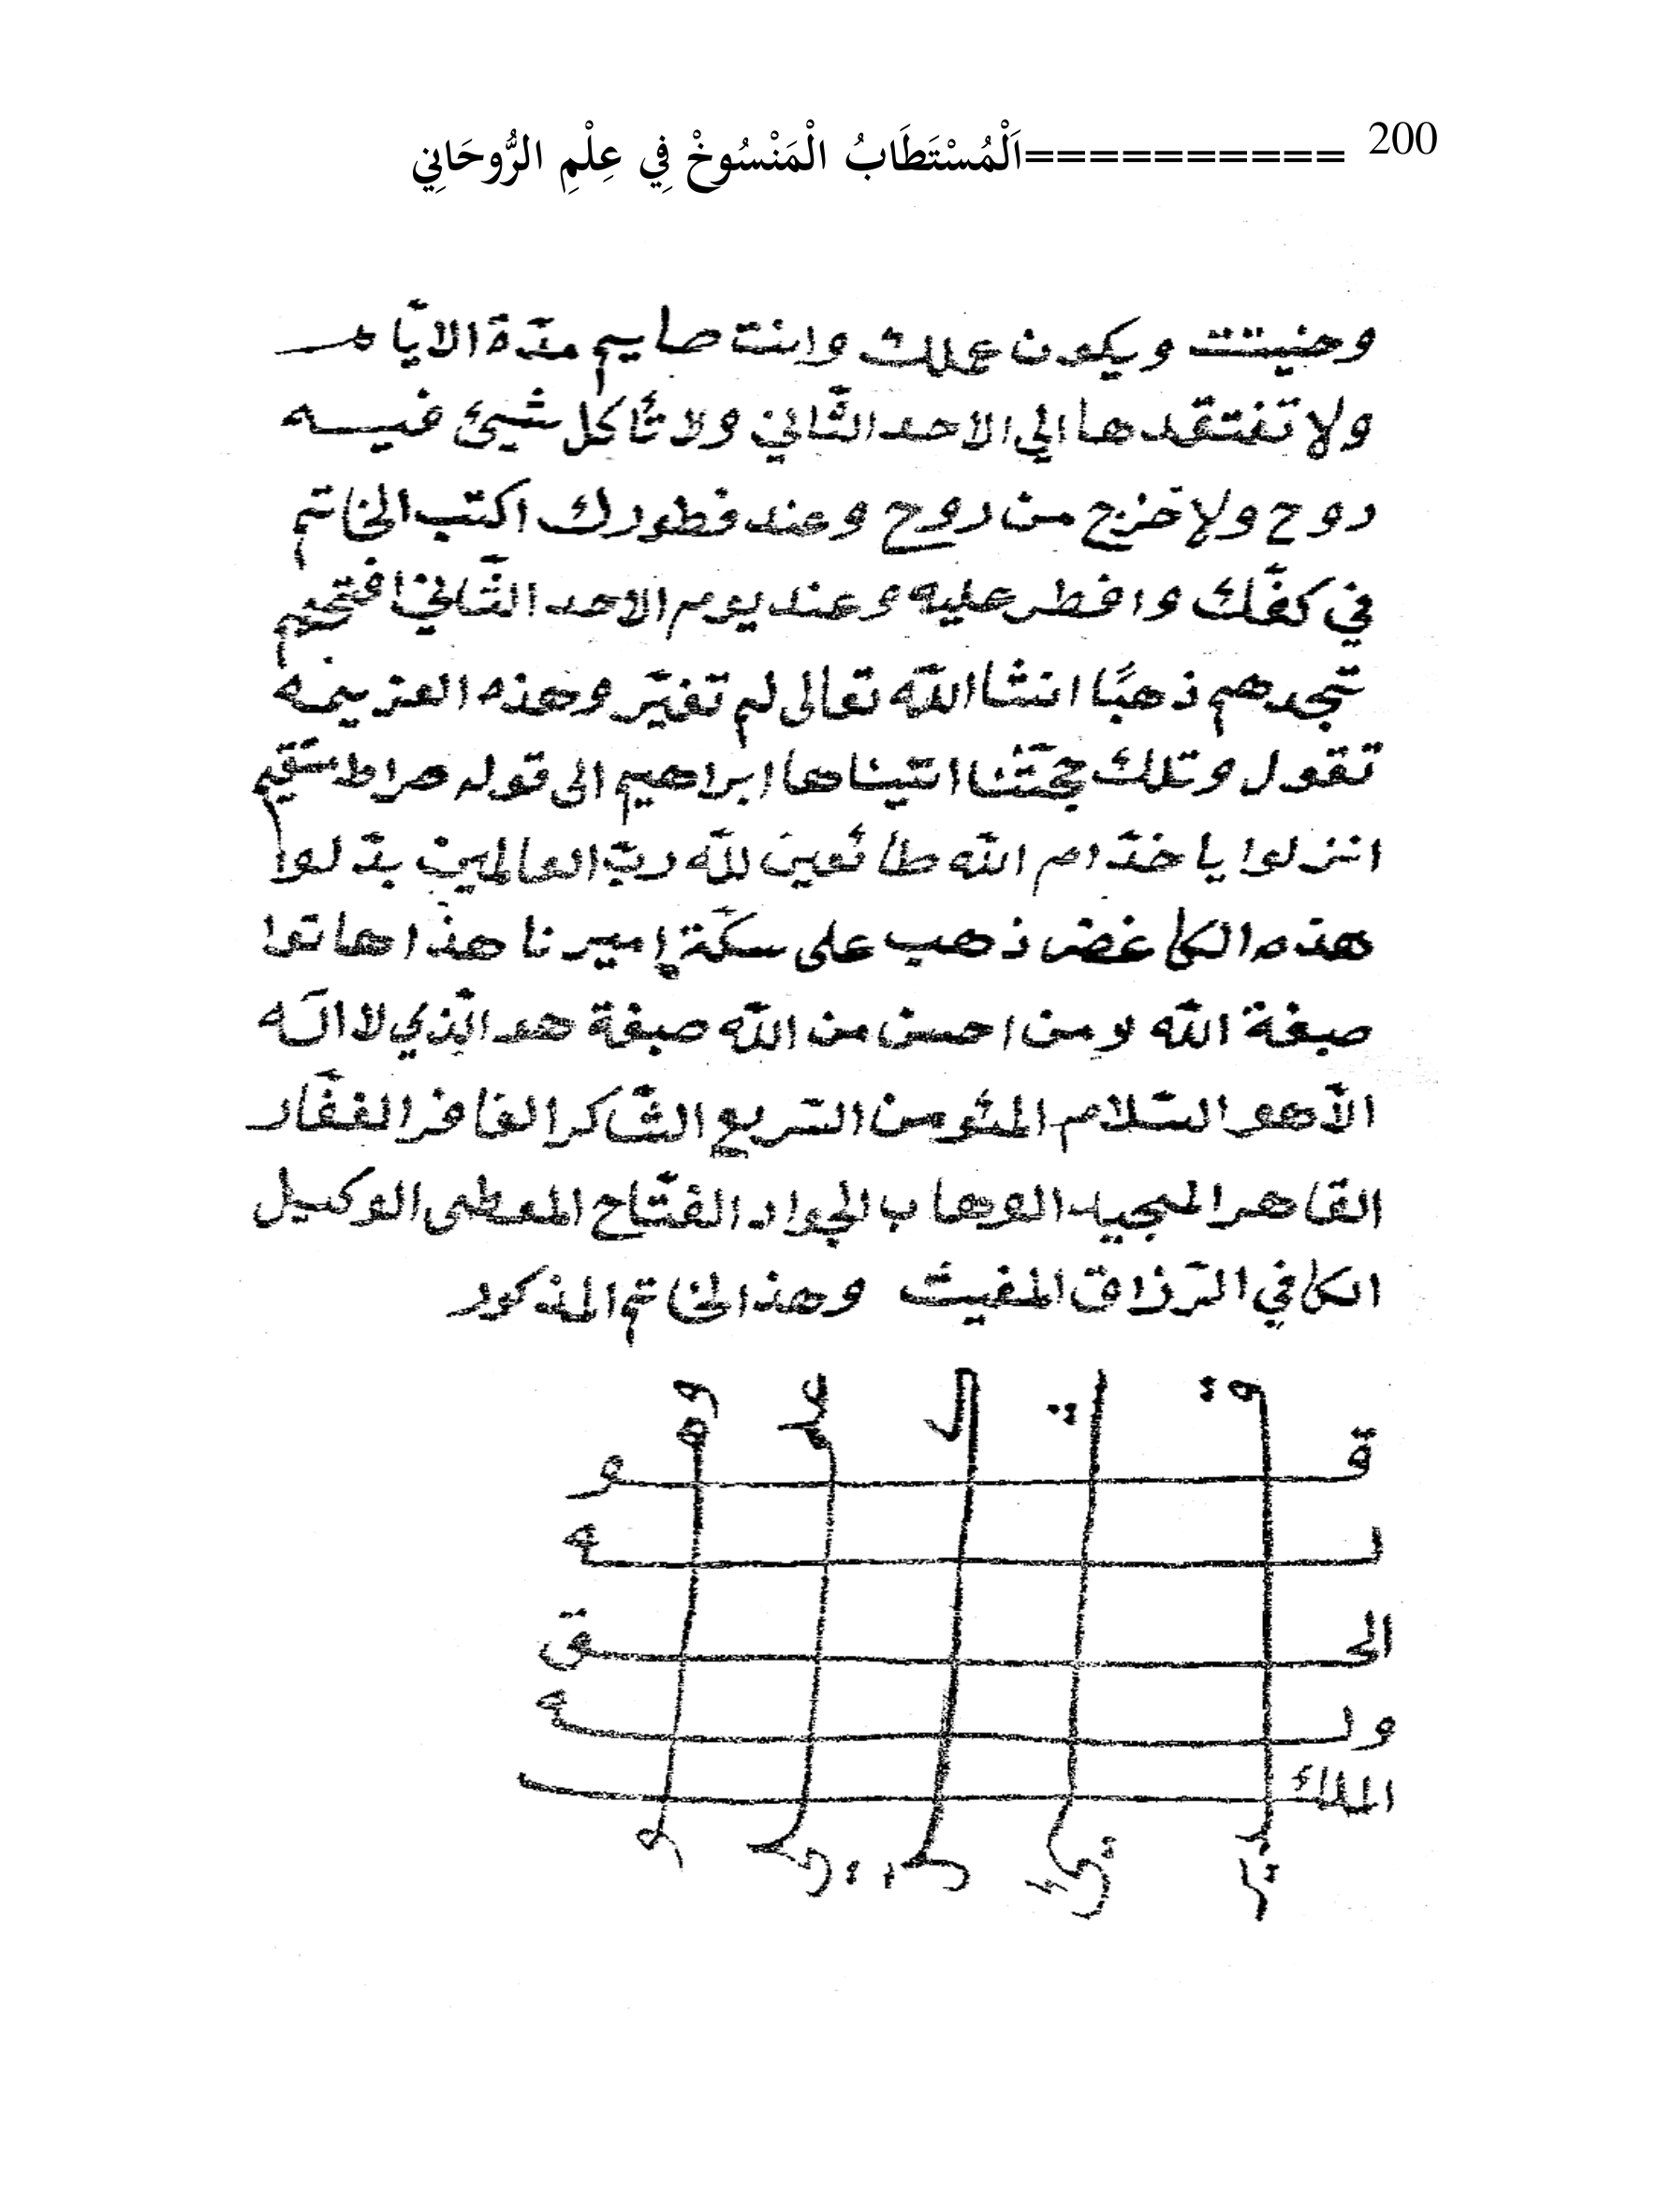 200 ==========اَلْمُسْتَطَابُ الْمَنْسُوخْ فِي عِلْمِ الرُّوحَانِي
وحنيتت ويكون عملك وانت صايم مدّة الايّام
ولا تفتقدها الي الاحد الثّاني ولا تأكل شيئ فيه
روح ولا خرج من روح وعند فطورك اكتب الخاتم
في كفّك وافطر عليه وعند يوم الاحد الثّاني افتحهم
تجدهم ذهبًا انشا الله تعالى لم تغيّر وهذه العزيمه
تقول وتلك حجّتنا اتيناها ابراهيم الى قوله صراط مستقيم
انزلوا يا خدّام الله طائعين للّه ربّ العالمين بدّلوا
هذه الكاغض ذهب على سكّة إميرنا هذا هاتوا
صبغة الله ومن احسن من الله صبغة هو الّذي لا اله
الّا هو السّلام المئومن السّريع الشّاكر الغافر الغفّار
القاهر المجيد الوهاب الجواد الفتّاح المعطى الوكيل
الكافي الرّزاق المغيث وهذ الخاتم المذكور
قو
له
الحق
وله
الملك